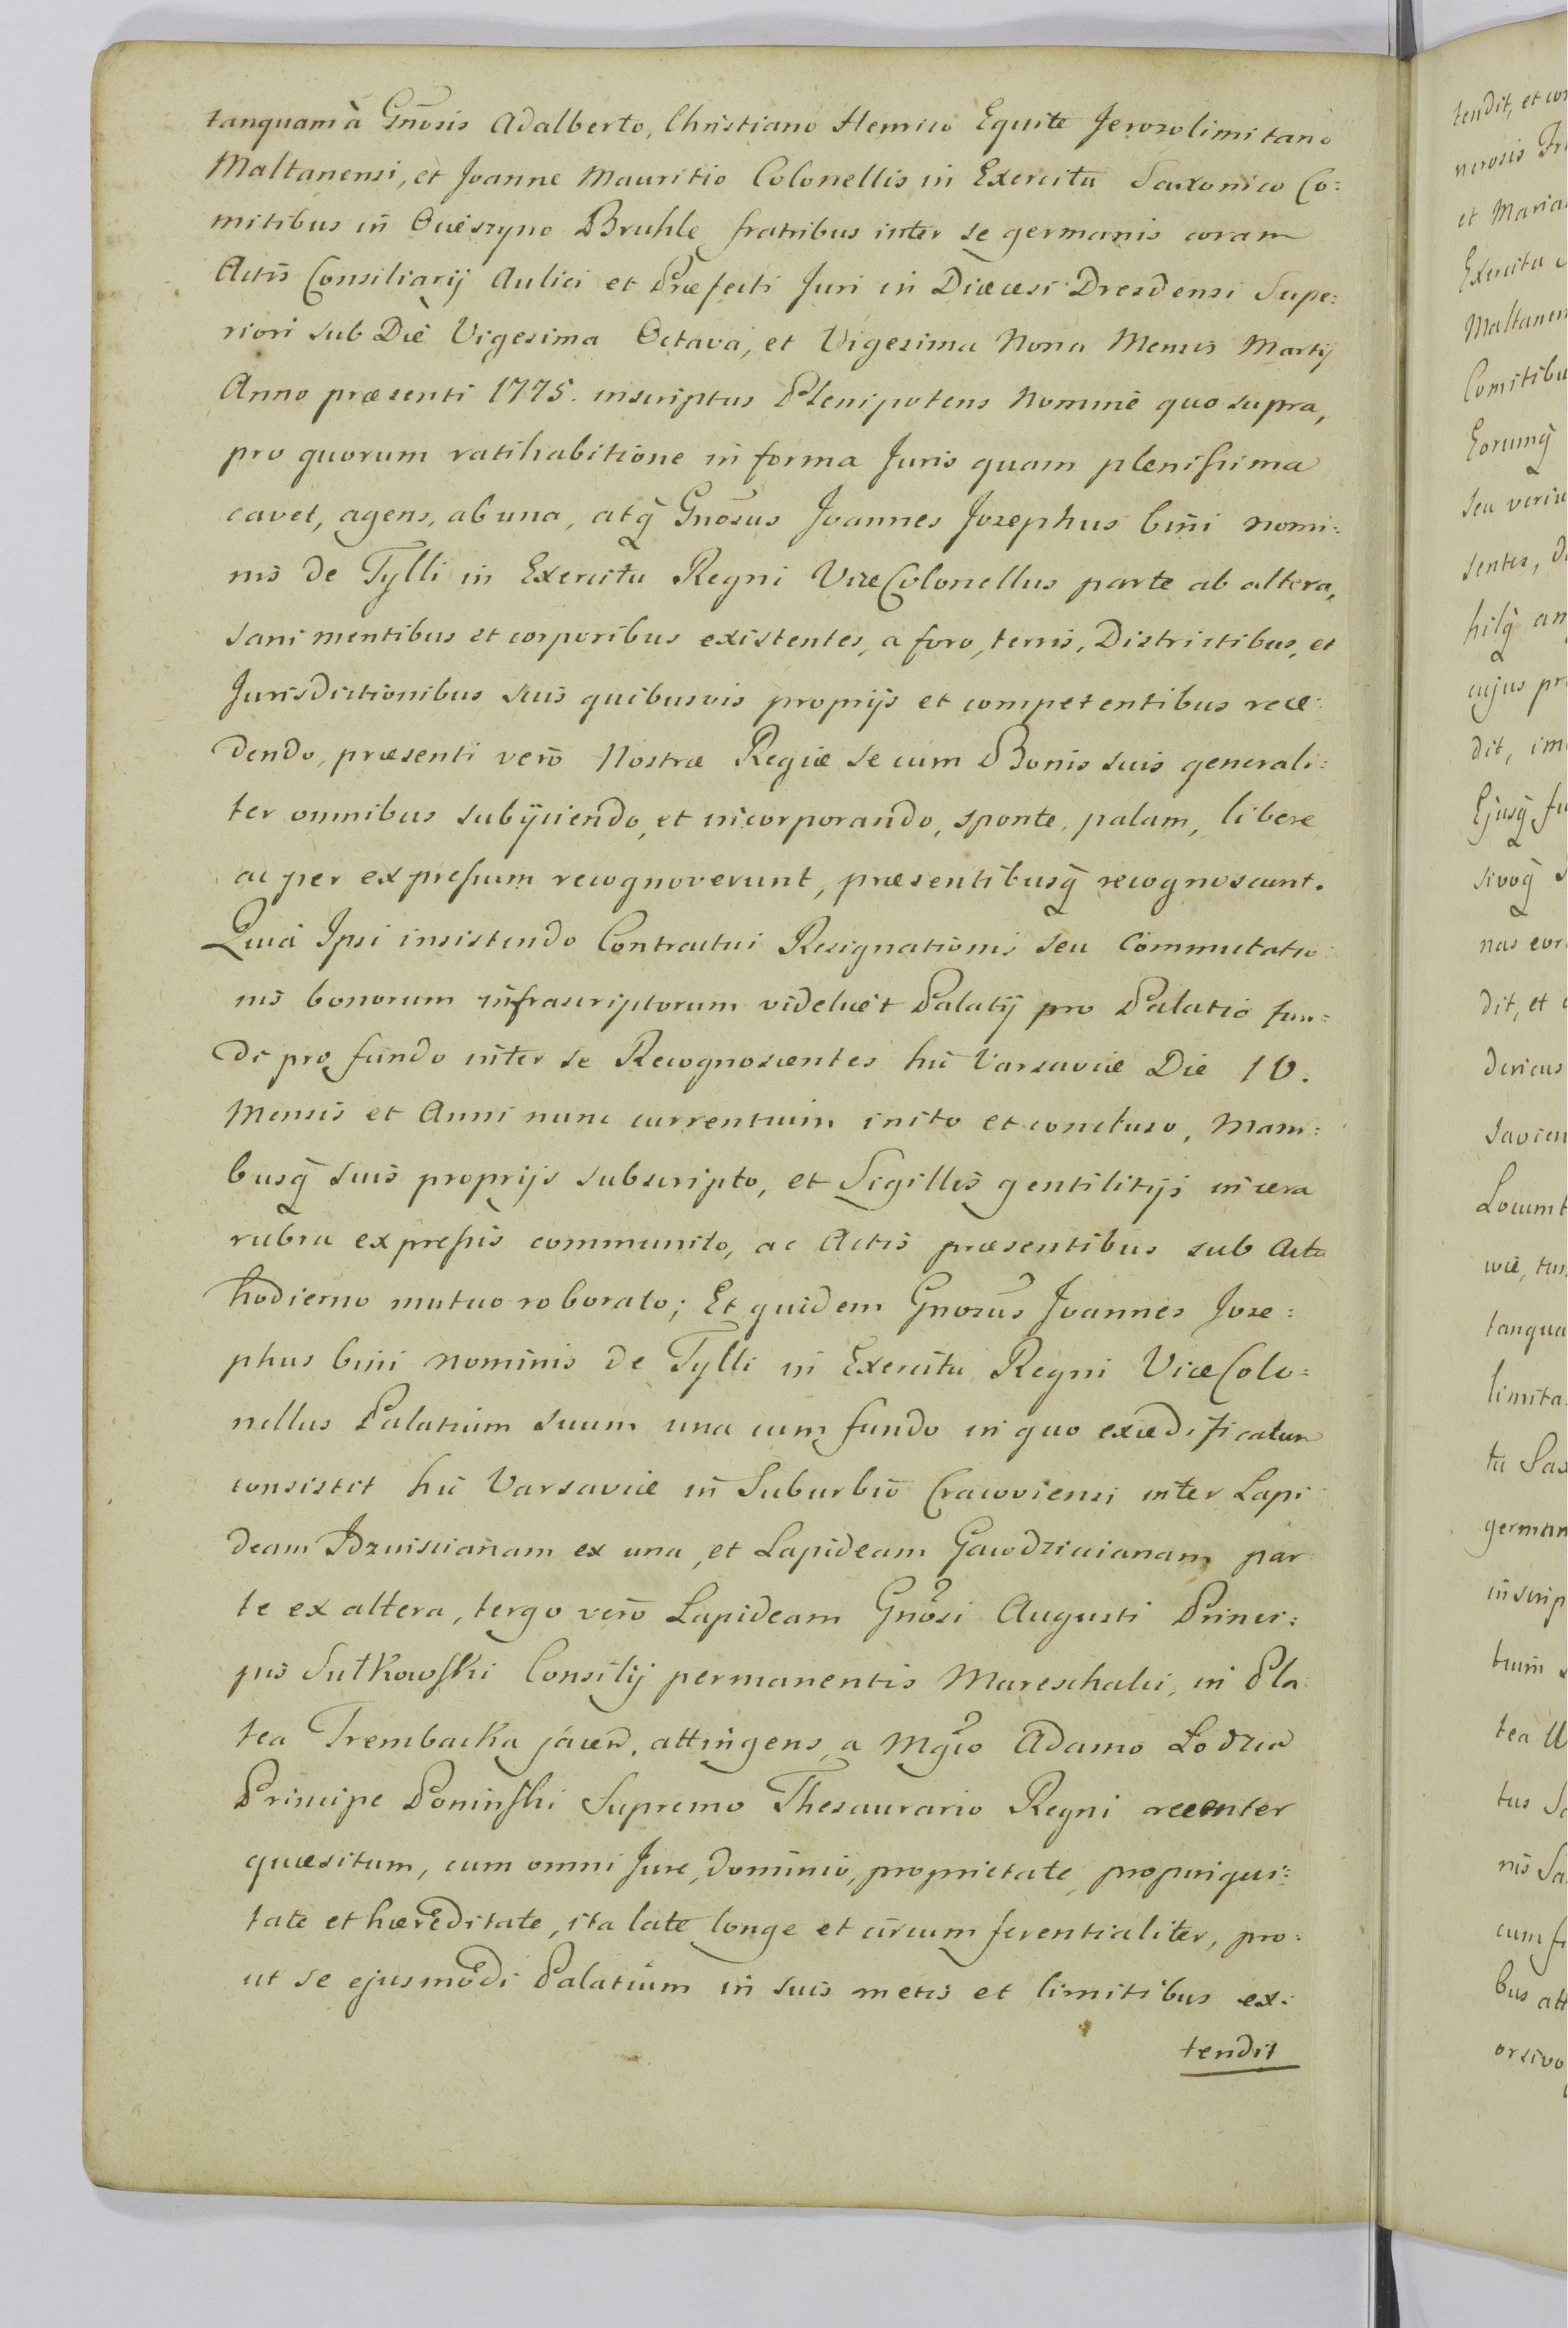 tanquam à Gnosis Adalberto, Christiano Henrico Equite Jerozolimitano
Maltanensi, et Joanne Mauritio Colonellis in Exercitu Saxonico Co:
mitibus in Ocieszyno Bruhle fratribus inter se germanis coram
Actis Consiliarij Aulici et Præfecti Juri in Diæcesi Dresdensi Supe:
riori sub Die Vigesima Octava, et Vigesima Nona Mensis Martij
Anno præsenti 1775. inscriptus Plenipotens Nomine quo supra,
pro quorum ratihabitione in forma Juris quam plenissima
cavet, agens, ab una, atq̃ Gnosus Joannes Josephus bini nomi:
nis de Tylli in Exercitu Regni ViceColonellus parte ab altera,
sani mentibus et corporibus existentes, a foro, terris, Districtibus, et
Jurisdictionibus suis quibusvis proprijs et competentibus rece:
dendo, præsenti vero Nostræ Regiæ se cum Bonis suis generali:
ter omnibus subijciendo, et incorporando, sponte, palam, libere
ac per expressum recognoverunt, præsentibusq̃ recognoscunt.
Quia Ipsi insistendo Contractui Resignationis seu Commutatio
nis bonorum infrascriptorum videlicet Palatij pro Palatio fun:
di pro fundo inter se Recognoscentes hic Varsaviæ Die 10.
Mensis et Anni nunc currentium inito et concluso, Mani:
busq̃ suis proprijs subscripto, et Sigillis gentilitijs in cera
rubra expressis communito, ac Actis præsentibus sub Actu
hodierno mutuo roborato; Et quidem Gnosus Joannes Jose:
phus bini nominis de Tylli in Exercitu Regni ViceColo:
nellus Palatium suum una cum fundo in quo exædificatum
consistit hic Varsaviæ in Suburbio Cracoviensi inter Lapi
deam ex una, et Lapideam Gawdzicianam par
te ex altera, tergo vero Lapideam Gnosi Augusti Princi:
pis Sułkowski Consilij permanentis Mareschalci, in Pla:
tea Trembacka jacen. attingens, a Mgco Adamo Łodzia
Principe Poninski Supremo Thesaurario Regni recenter
quæsitum, cum omni Jure, dominio, proprietate, propinqui:
tate et hæreditate, ita late longe et circumferentialiter, pro:
ut se ejusmodi Palatium in suis metis et limitibus ex:
tendit
tendit, et
et Maria
Exercitu
Maltanen
Comitibu
Eorumq̃
seu
sentes,
hilq̃
cujus
dit,
Ejusq̃
sivoq̃
nas
dit, et
dericus
tanqua
limita
tu Sax
german
inscrip
tea
tus
nis
cum
bus